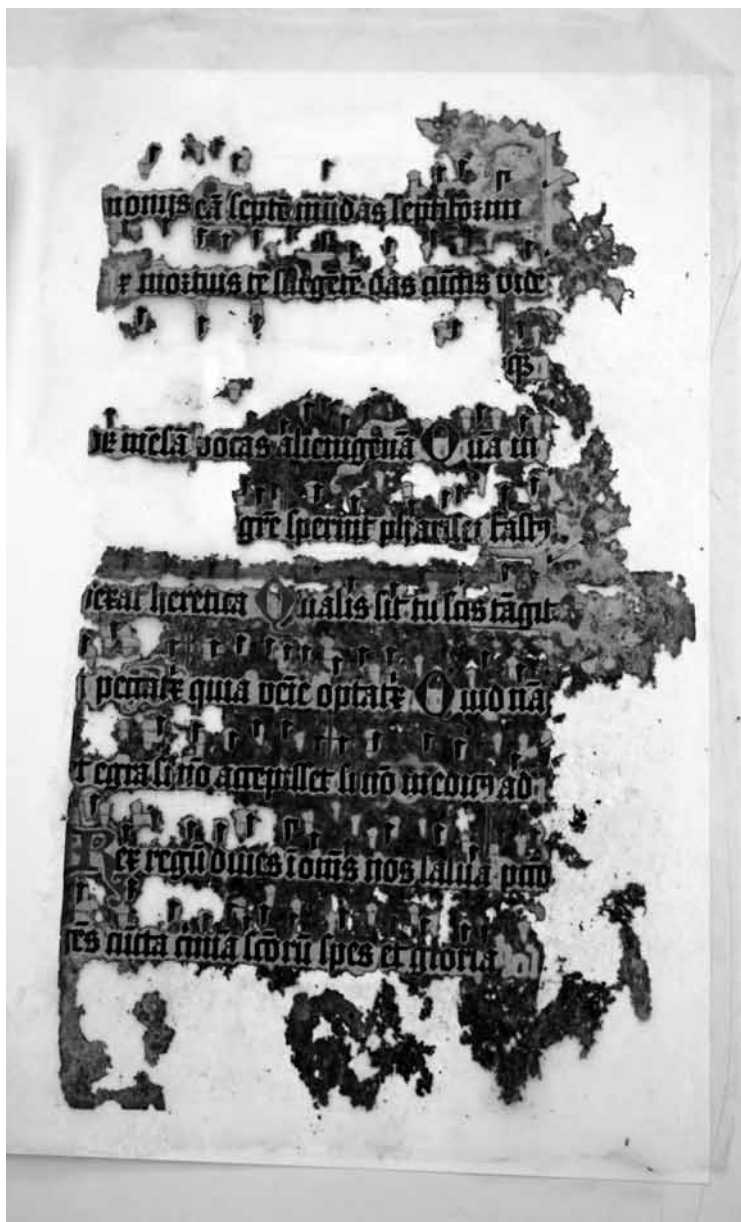 monijs eā septē mūdas septiformi
ex mortuis te surgētē das cūctis vide
de mēsā vocas alienigenā Quā in
grē spernit pharisei fastꝰ
vexat heretica Qualis sit tu scis tāgit
peccatrix quia vēie optatrix Quid nā
t egra si nō accepisset si nō medicꝰ ad
Rex regū diues ī om̄s nos salua pctō
gēs cūcta cimīa scōrū spes et gloria